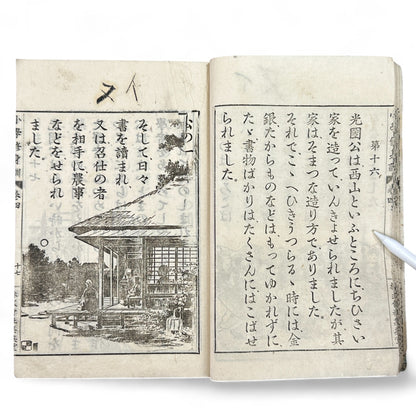 第十六
光圀公は西山といふところにちひさい
家を造っていんきよせられましたが其
家はそまつな造り方でありました
それでこゝへひきうつらるゝ時には金
銀たからものなどはもってゆかれずに
たゞ書物ばかりはたくさんにはこばせ
られました
そして日々
書を讀まれ
又は召仕の者
を相手に農事
などをせられ
ました。